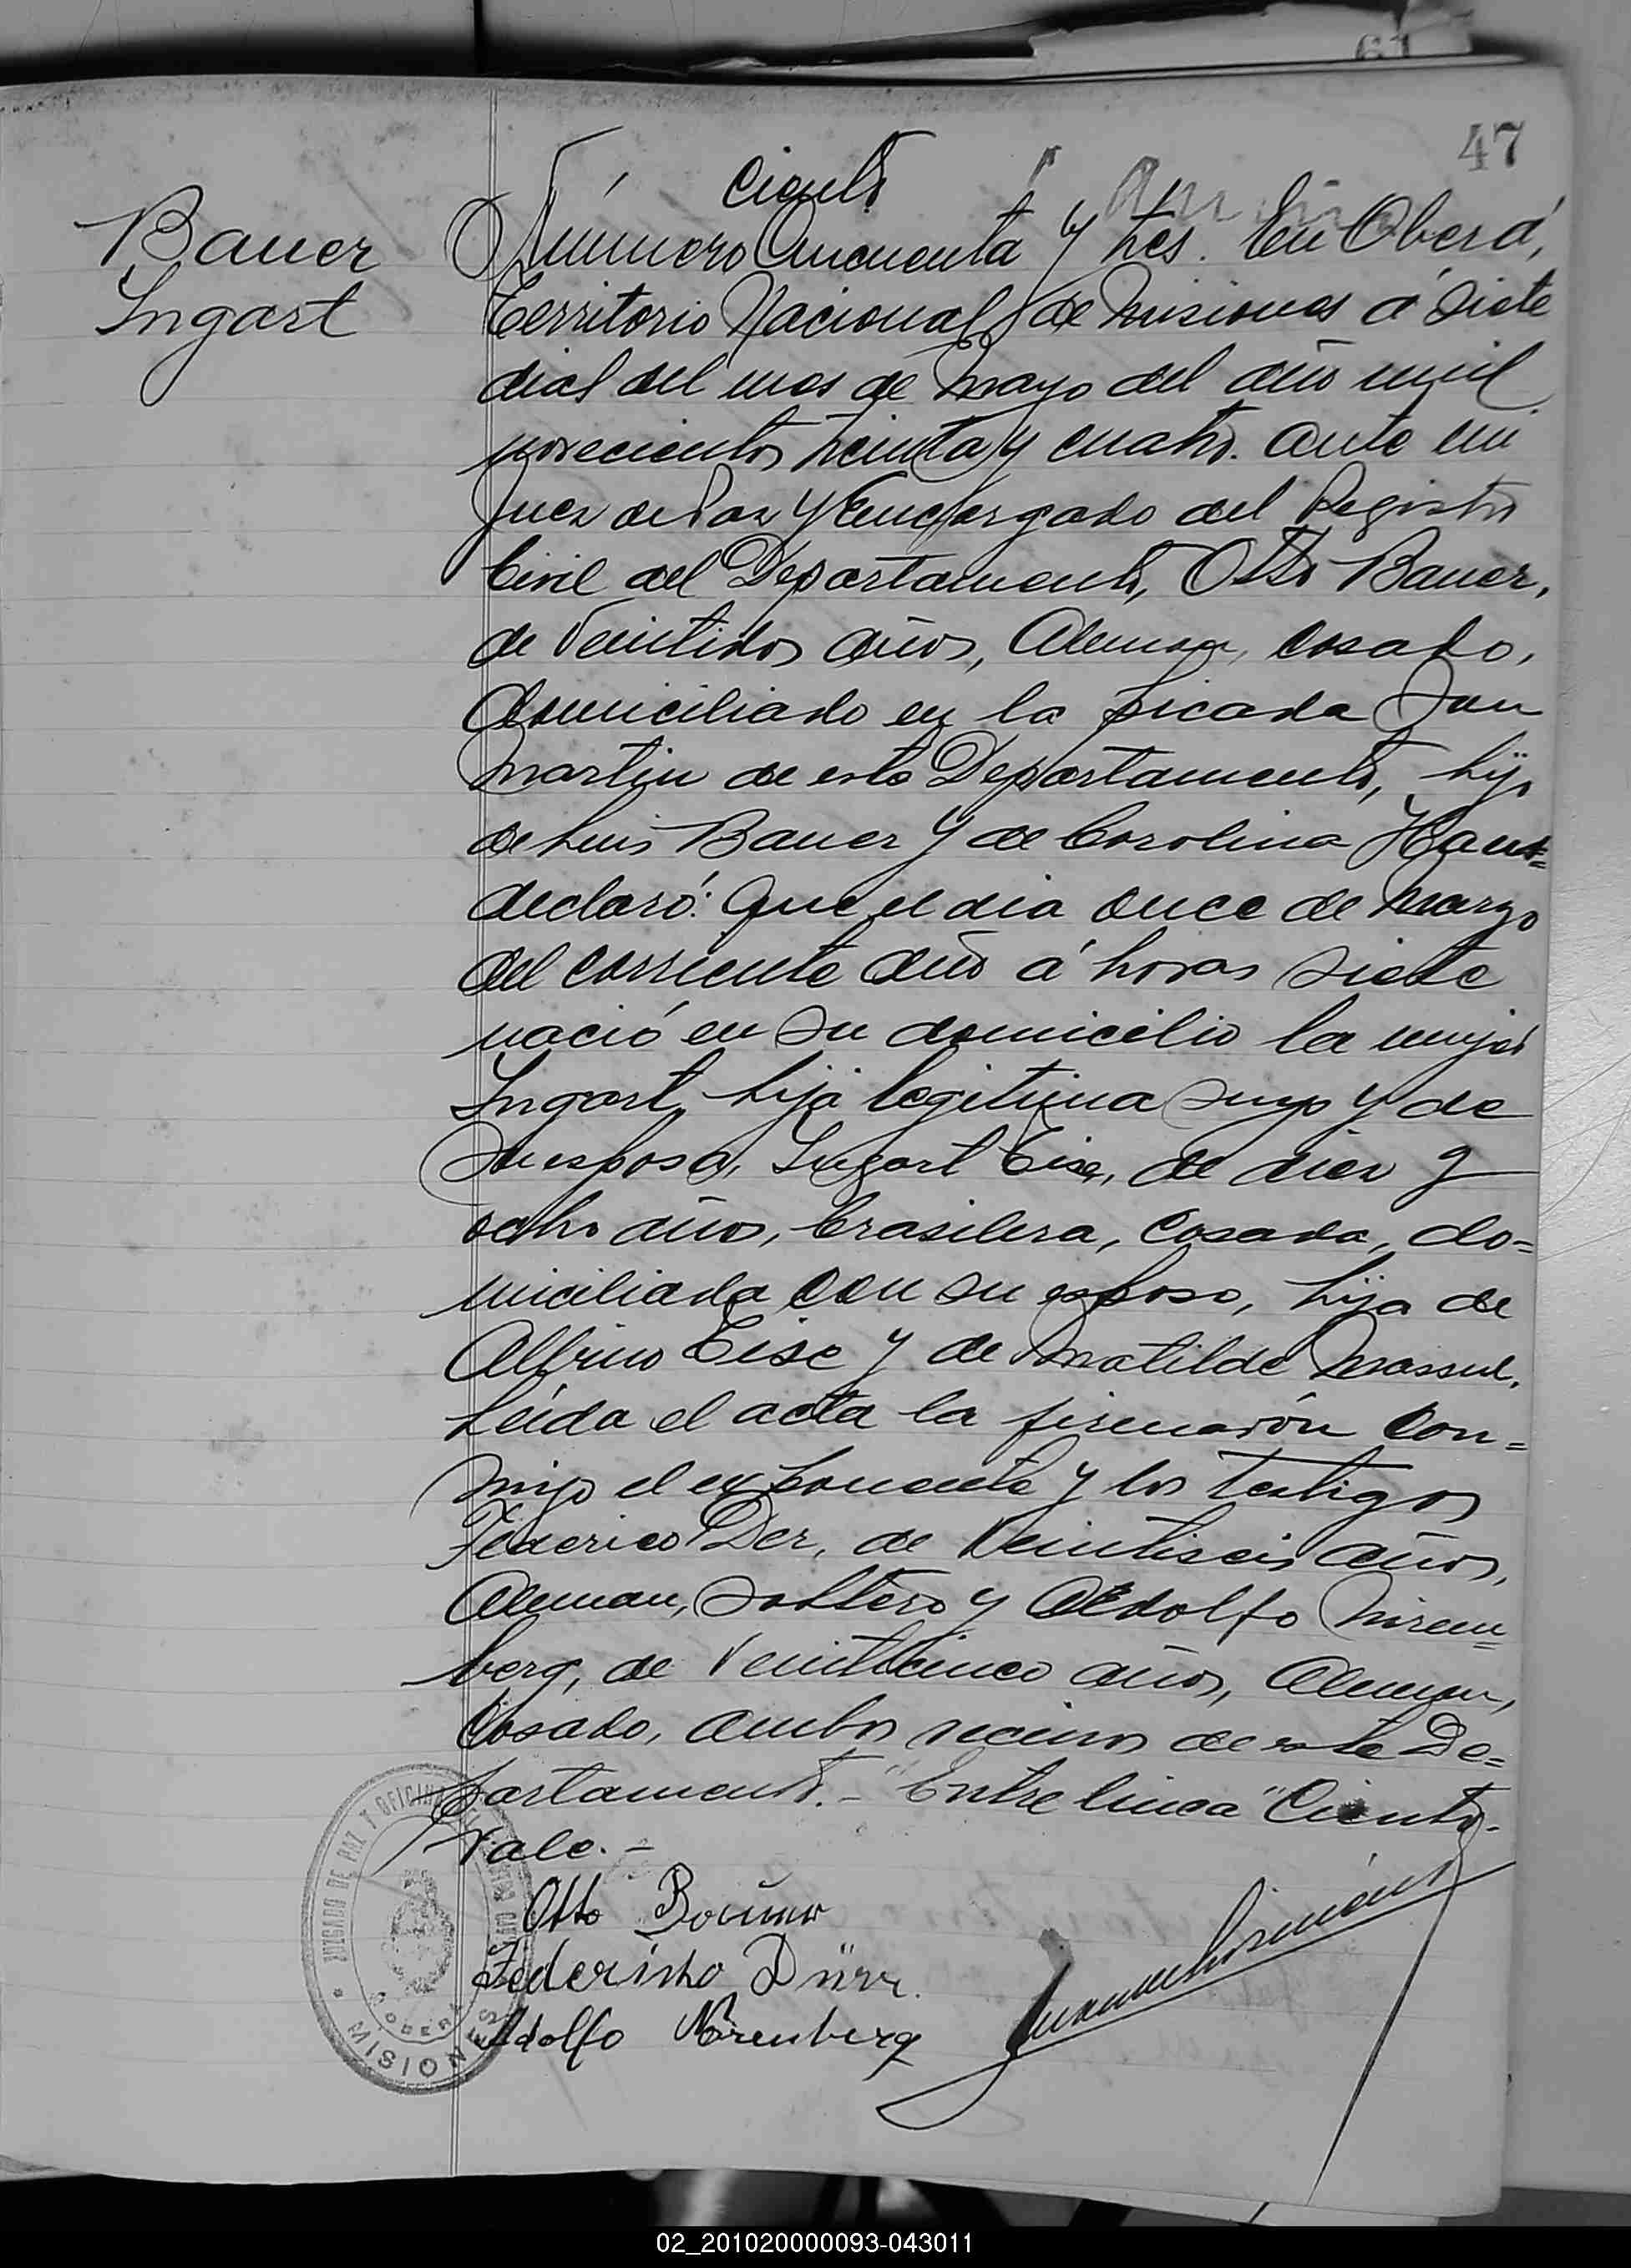 61
47
Bauer
Ingart
Ciento
Número Cincuenta y tres. En Oberá,
Territorio Nacional de Misiones á siete
dias del mes de Mayo del año mil
novecientos treinta y cuatro. ante mi
Juez de Paz y Encargado del Registro
Civil del Departamento, Otto Bauer,
de Veintidos años, Aleman, Casado,
domiciliado en la picada San
Martin de este Departamento, hijo
de Luis Bauer y de Carolina
declaró: Que el dia once de Marzo
del corriente año á horas siete
nació en su domicilio la mujer
Ingart, hija legitima suya y de
su esposa, Ingart Eise, de diez y
ocho años, brasilera, Casada, do=
miciliada con su esposo, hija de
Albino Eise y de Matilde Massul.
Leída el acta la firmarón Con=
migo el exponente y los testigos
Federico Der, de Veintiseis años,
Aleman, Soltero y Adolfo Nirem=
berg, de Veinticinco años, Aleman,
Casado, ambos vecinos de este De=
partamento.- "Entre linea" Ciento.
Vale.-
Otto Bauer
Federisho Dürr.
Adolfo Nörenberg
JUZGADO DE PAZ Y OFICINA
OBERA
MISIONES
02_201020000093-043011